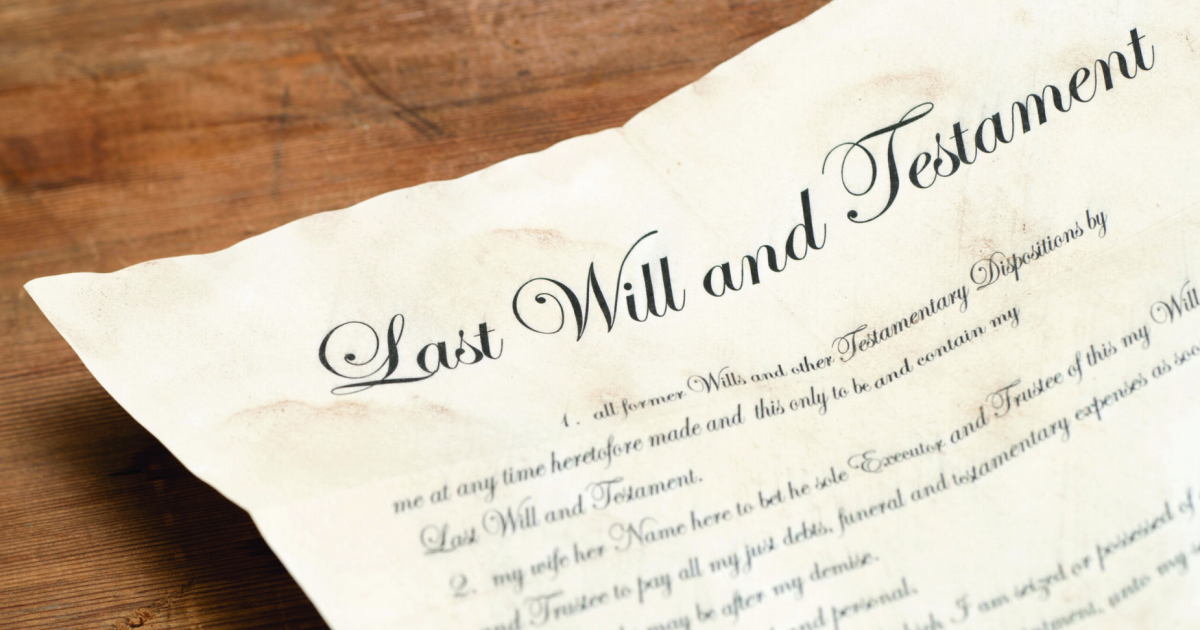 Last Will and Testament
1. all former Wills and other Testamentary Dispositions by
me at any time heretofore made and this only to be and contain my
Last Will and Testament.
2. my wife her Name here to bet he sole Executor and Trustee of this my Will
and Trustee to pay all my just debts, funeral and testamentary expenses as soo
may be after my demise.
and personal,
which I am seized or possessed of
unto my